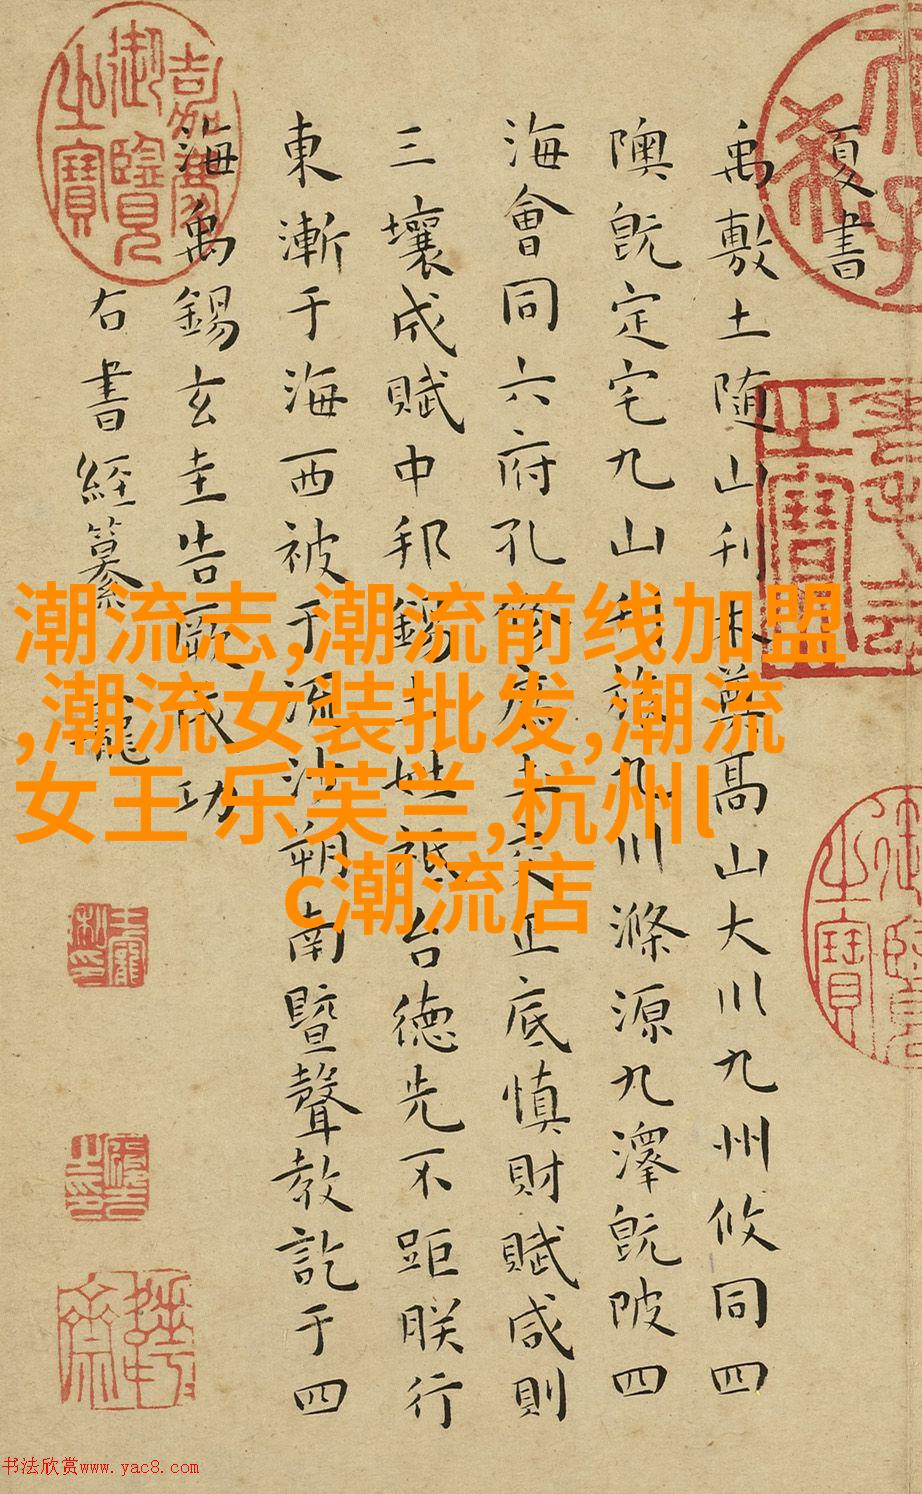 夏書
禹敷土随山刊木奠高山大川九州攸同四
隩既定宅九山刊旅九川滌源九澤既陂四
海會同六府孔修庶土交正底慎財賦咸則
三壤成賦中邦錫土姓祗台德先不距朕行
東漸于海西被于流沙朔南暨聲教訖于四
海禹錫玄圭告厥成功
右書經纂 寵
嘉慶御覽之寶
潮流志,潮流前线加盟
,潮流女装批发,潮流
女王 乐芙兰,杭州l
c潮流店
书法欣赏www.yac8.com